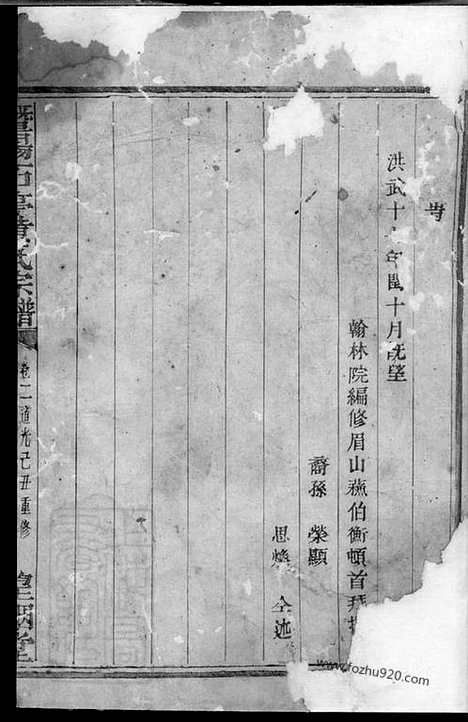 時
洪武十年閏十月既望
翰林院編修眉山蘇伯衡頓首拜
裔孫 榮顯
思 仝述
暨陽石亭黃氏宗譜
卷二 道光己丑重修
皇 堂
www.fozhu920.com